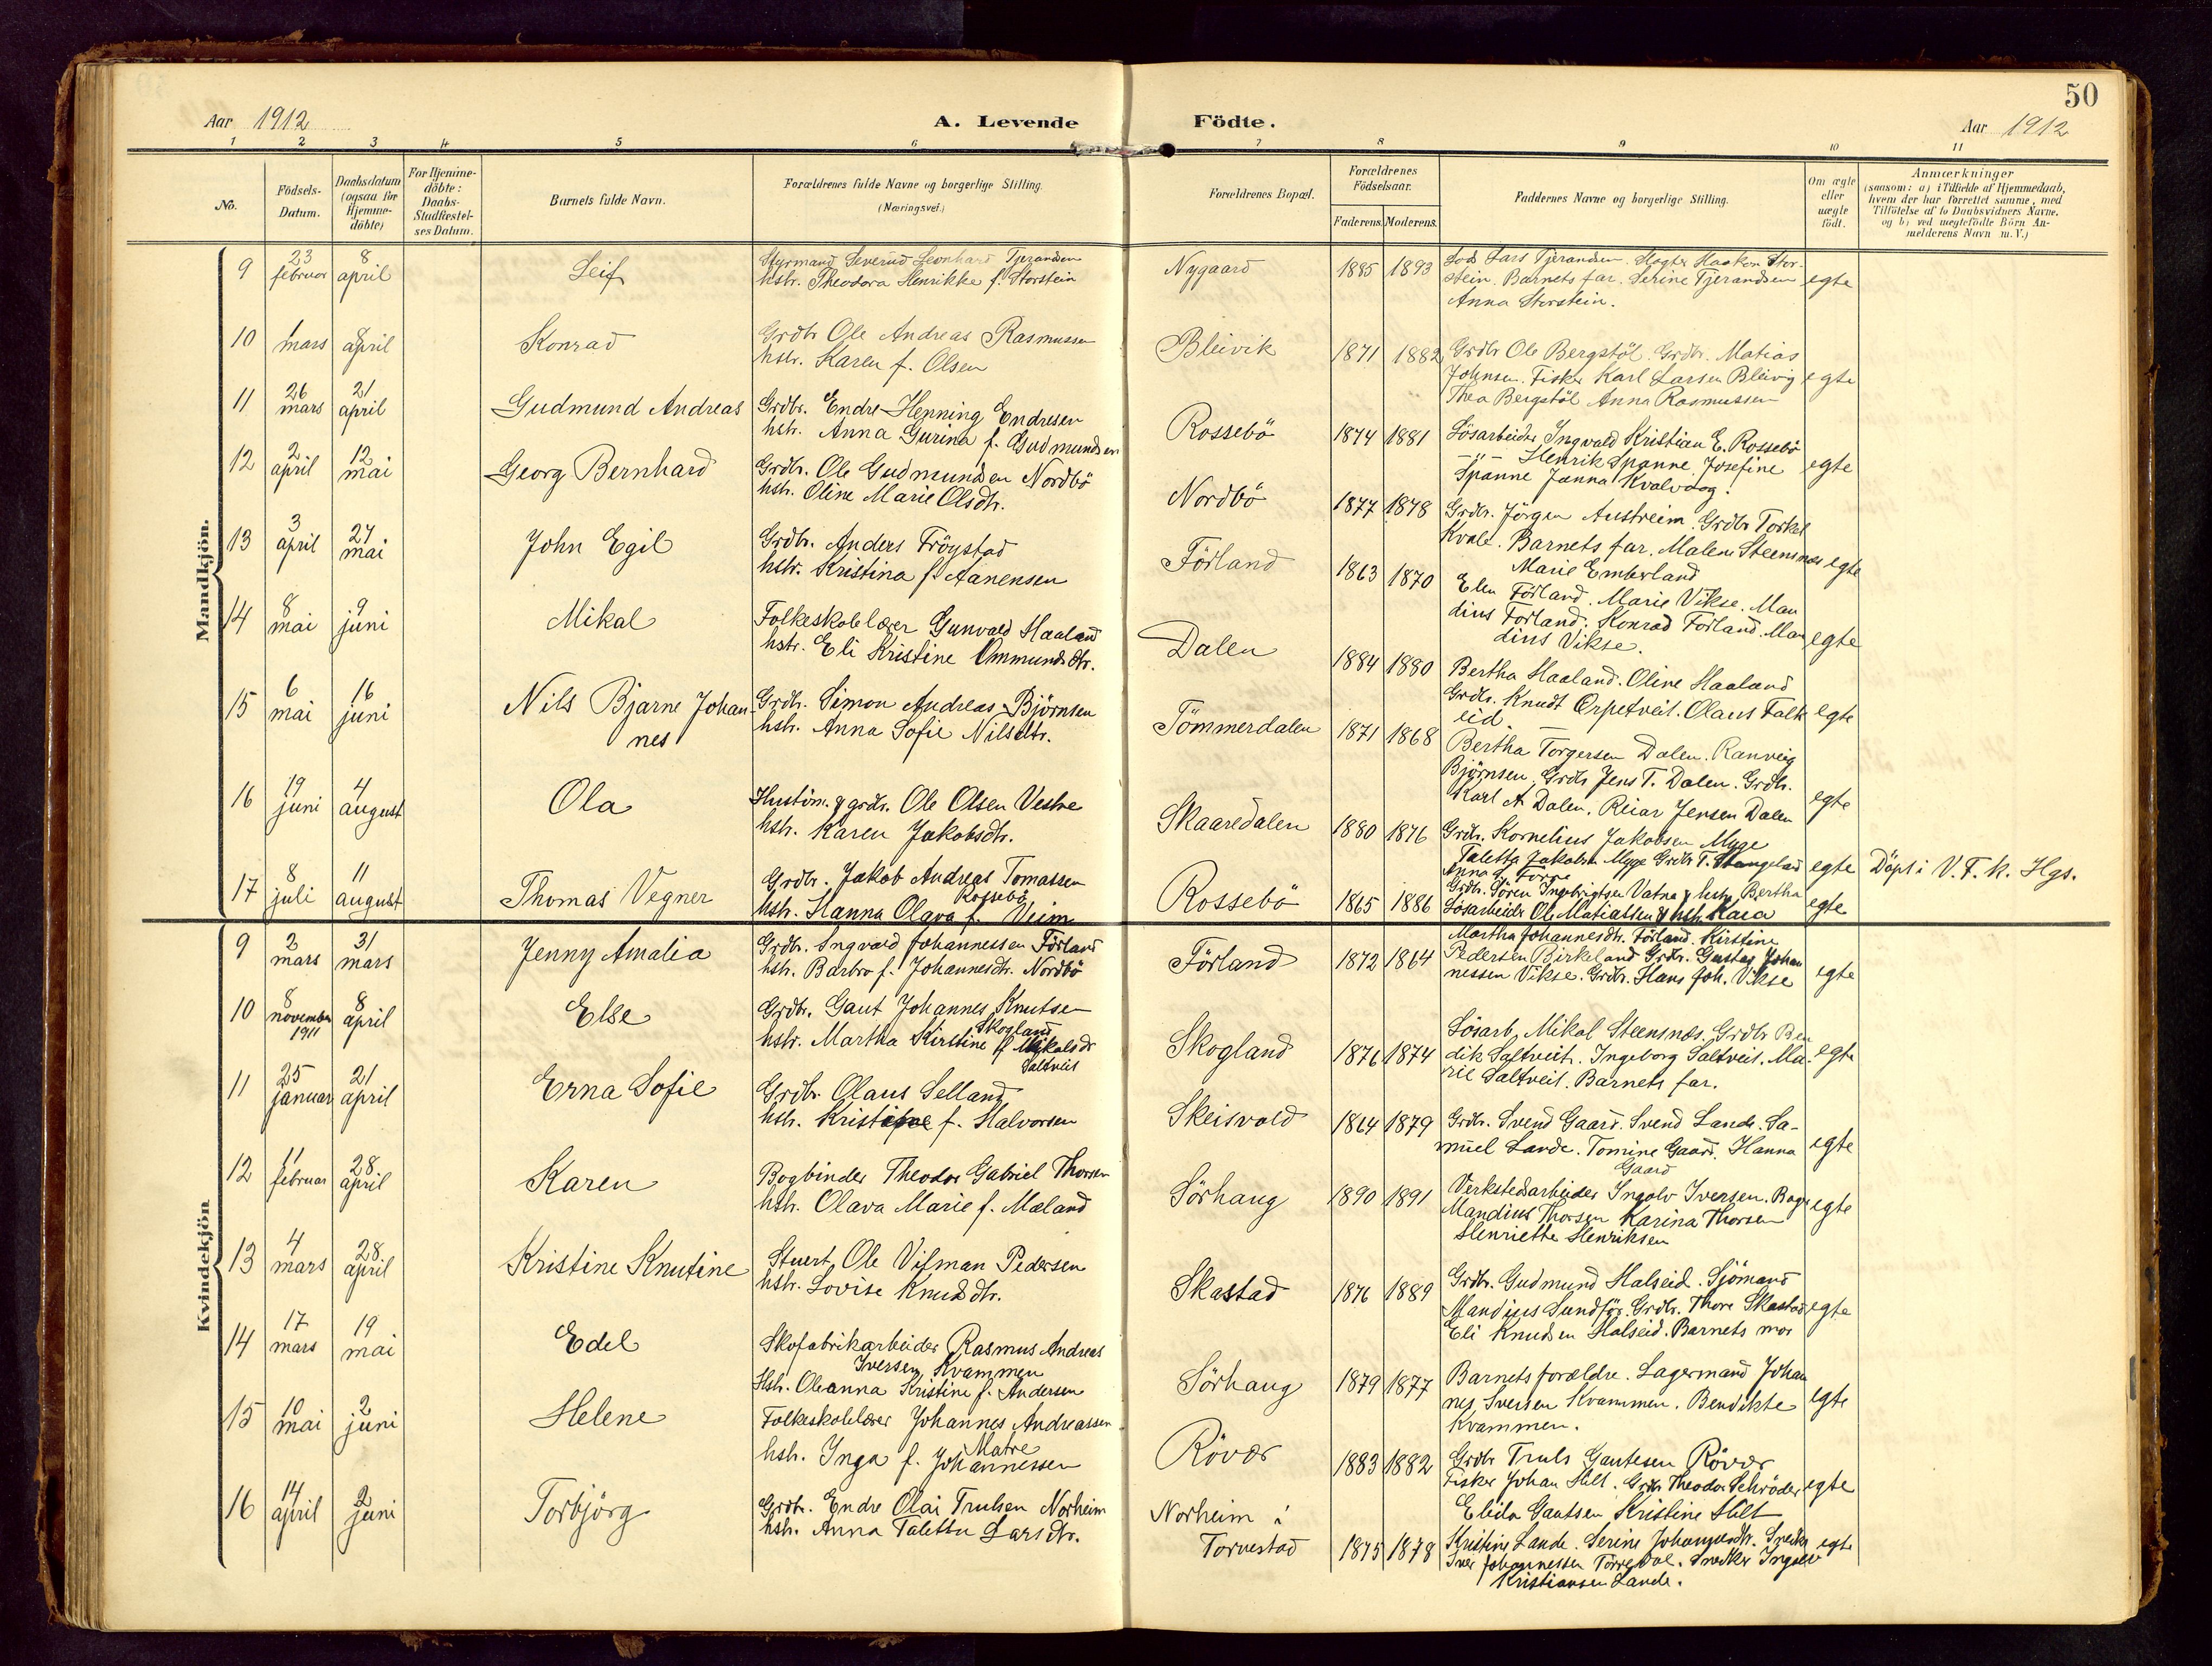 50
Aar 1912
A. Levende
Födte.
Aar 1912
1 2 3 4 5 6 7 8 9 10 11
No.
Födsels-
Datum.
Daabsdatum
(ogsaa for
Hjemme-
döbte)
For Hjemme-
döbte:
Daabs-
Stadfæstel-
ses Datum.
Barnets fulde Navn.
Forældrenes fulde Navne og borgerlige Stilling.
(Næringsvei.)
Forældrenes Bopæl.
Forældrenes
Födselsaar.
Faderens. Moderens.
Faddernes Navne og borgerlige Stilling.
Om ægte
eller
uægte
födt.
Anmærkninger
(saasom: a) i Tilfælde af Hjemmedaab,
hvem der har forrettet samme, med
Tilföielse af to Daabsvidners Navne.
og b) ved uægtefödte Börn An-
melderens Navn m. V.)
Mandkjön.
9 23 februar 8 april Leif
Styrmand Severin Leonhard Tjerandsen
hstr. Theodora Henrikke f. Storstein
Nygaard 1885 1893
Lods Lars Tjerandsen. Slagter Haakon Stor-
stein. Barnets far. Serine Tjerandsen egte
Anna Storstein.
10 1 mars 8 april Konrad
Grdbr Ole Andreas Rasmussen
hstr. Karen f. Olsen
Bleivik 1871 1882
Grdbr Ole Bergstöl. Grdbr. Matias
Johnsen. Fisker Karl Larsen Bleivig egte
Thea Bergstöl Anna Rasmussen
11 26 mars 21 april Gudmund Andreas
Grdbr. Endre Henning Endresen
hstr. Anna Gurina f. Gudmundsen
Rossebö 1874 1881
Lösarbeider Ingvald Kristian E. Rossebö
–"– Henrik Spanne. Josefine egte
Spanne Janna Kvalvaag.
12 2 april 12 mai Georg Bernhard
Grdbr. Ole Gudmundsen Nordbö
hstr. Oline Marie Olsdtr.
Nordbö 1877 1878
Grdbr. Jörgen Austreim. Grdbr Torkel
Kvale. Barnets far. Malene Steensnæs egte
Marie Emberland
13 3 april 27 mai John Egil
Grdbr. Anders Fröystad
hstr. Kristina f. Aanensen
Förland 1863 1870
Elen Förland. Marie Vikse. Man
dius Förland. Konrad Förland. Man egte
dius Vikse.
14 8 mai 9 juni Mikal
Folkeskolelærer Gunvald Haaland
hstr. Eli Kristine Ommundsdtr.
Dalen 1884 1880
Bertha Haaland. Oline Haaland
Grdbr. Knudt Erpetveit. Olaus Falk egte
eid
15 6 mai 16 juni Nils Bjarne Johan
nes
Grdbr. Simon Andreas Björnsen
hstr. Anna Sofie Nilsdtr.
Tömmerdalen 1871 1868
Bertha Torgersen Dalen. Ranveig
Björnsen. Grdb Jens T. Dalen. Grdbr.
Karl A Dalen. Reiar Jensen Dalen egte
16 19 juni 4 august Ola
Hustöm. & grdbr. Ole Olsen Vestre
hstr. Karen Jakobsdtr.
Skaaredalen 1880 1876
Grdbr. Kornelius Jakobsen Myge
Taletta Jakobsen Myge Grdbr T. Stangeland egte Döpt i V. F. k. Hgs.
17 8 juli 11 august Thomas Vegner
Grdbr. Jakob Andreas Tomassen
Rossebö
hstr. Hanna Olava f. Veim
Rossebö 1865 1886
Grdbr. Sören Ingebrigtsen Vatne & hstr. Bertha
Lösarbeider Ole Matiassen & hstr. Kaia egte
Kvindekjön
9 2 mars 31 mars Jenny Amalia
Grdbr. Ingvald Johannessen Förland
hstr. Barbro f. Johannesdtr. Nordbö
Förland 1872 1864
Martha Johannesdtr. Förland. Kirstine
Pedersen Birkeland Grdbr. Gustav Johan
nessen Vikse. Grdbr. Hans Joh. Vikse egte
10 8 november 1911 8 april Else
Grdbr. Gaut Johannes Knutsen
Skogland
hstr. Martha Kirstine f. Mikalsdr
Saltveit
Skogland 1876 1874
Lösarb. Mikal Steensnæs. Grdbr Ben
dik Saltveit. Ingeborg Saltveit. Ma- egte
rie Saltveit. Barnets far.
11 25 januar 21 april Erna Sofie
Grdbr. Olaus Selland
hstr. Kristine f. Halvorsen
Skeisvold 1864 1879
Grdbr. Svend Gaard. Svend Lande. Sa-
muel Lande. Tomine Gaard. Hanna egte
Gaard
12 11 februar 28 april Karen
Bogbinder Theodor Gabriel Thorsen
hstr. Olava Marie f. Mæland
Sörhaug 1890 1891
Verkstedsarbeider Ingolv Iversen. Bager egte
Mandius Thorsen Karina Thorsen
Henriette Henriksen
13 4 mars 28 april Kristine Knutine
Stuert Ole Vilman Pedersen
hstr. Lovise Knudsdtr.
Skastad 1876 1889
Grdbr. Gudmund Halseid. Sjömand
Mandius Sundför. Grdbr. Thore Skastad egte
Eli Knudsen Halseid. Barnets mor
14 17 mars 19 mai Edel
Skofabrikarbeider Rasmus Andreas
Iversen Kvammen
Hstr. Oleanna Kristine f. Andersen
Sörhaug 1879 1877
Barnets forældre. Lagermand Johan
nes Iversen Kvammen. Bendikte egte
Kvammen.
15 10 mai 2 juni Helene
Folkeskolelærer Johannes Andreassen
Matre
hstr. Inga f. Johannessen
Rövær 1883 1882
Grdbr Truls Gautesen Rövær
Fisker Johan Hilt. Grdbr Theodor Schröder egte
Elida Gautsen Kristine Hilt
16 14 april 2 juni Torbjörg
Grdbr. Endre Olai Trulsen Norheim
hstr. Anna Taletta Larsdtr.
Norheim i
Torvestad 1875 1878
Kristine Lande. Serine Johannesdtr. Snedker egte
Iver Johannessen Törredal. Snedker Ingolv
Kristiansen Lande.